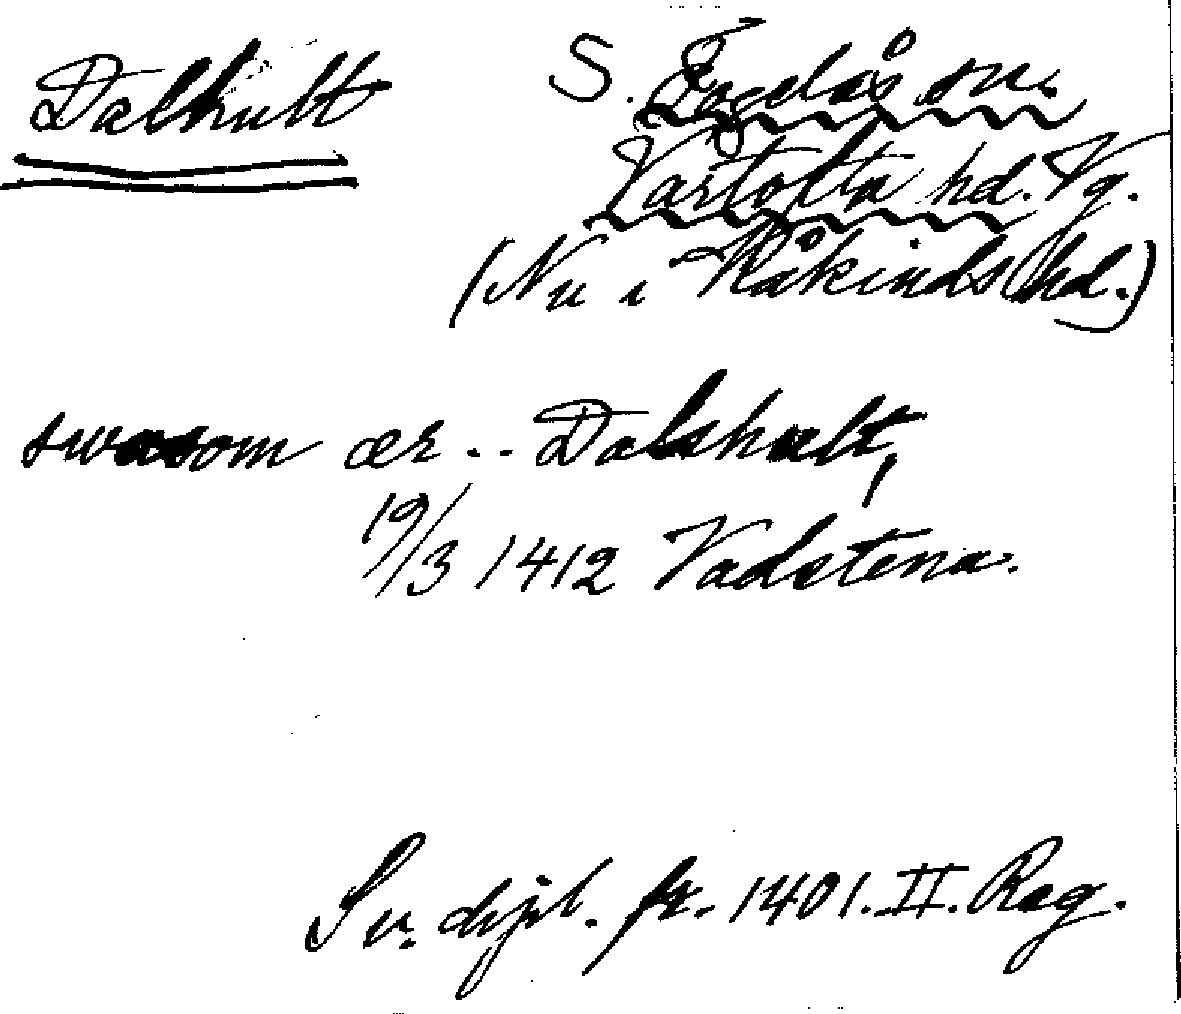 Dalhult
S. Fägelås sn.
Vartofta hd. Vg.
(Nu i Kåkinds hd.)
swasom ær .. Dalshult,
19/3 1412 Vadstena.
Sv. dipl. fr. 1401. II. Reg.